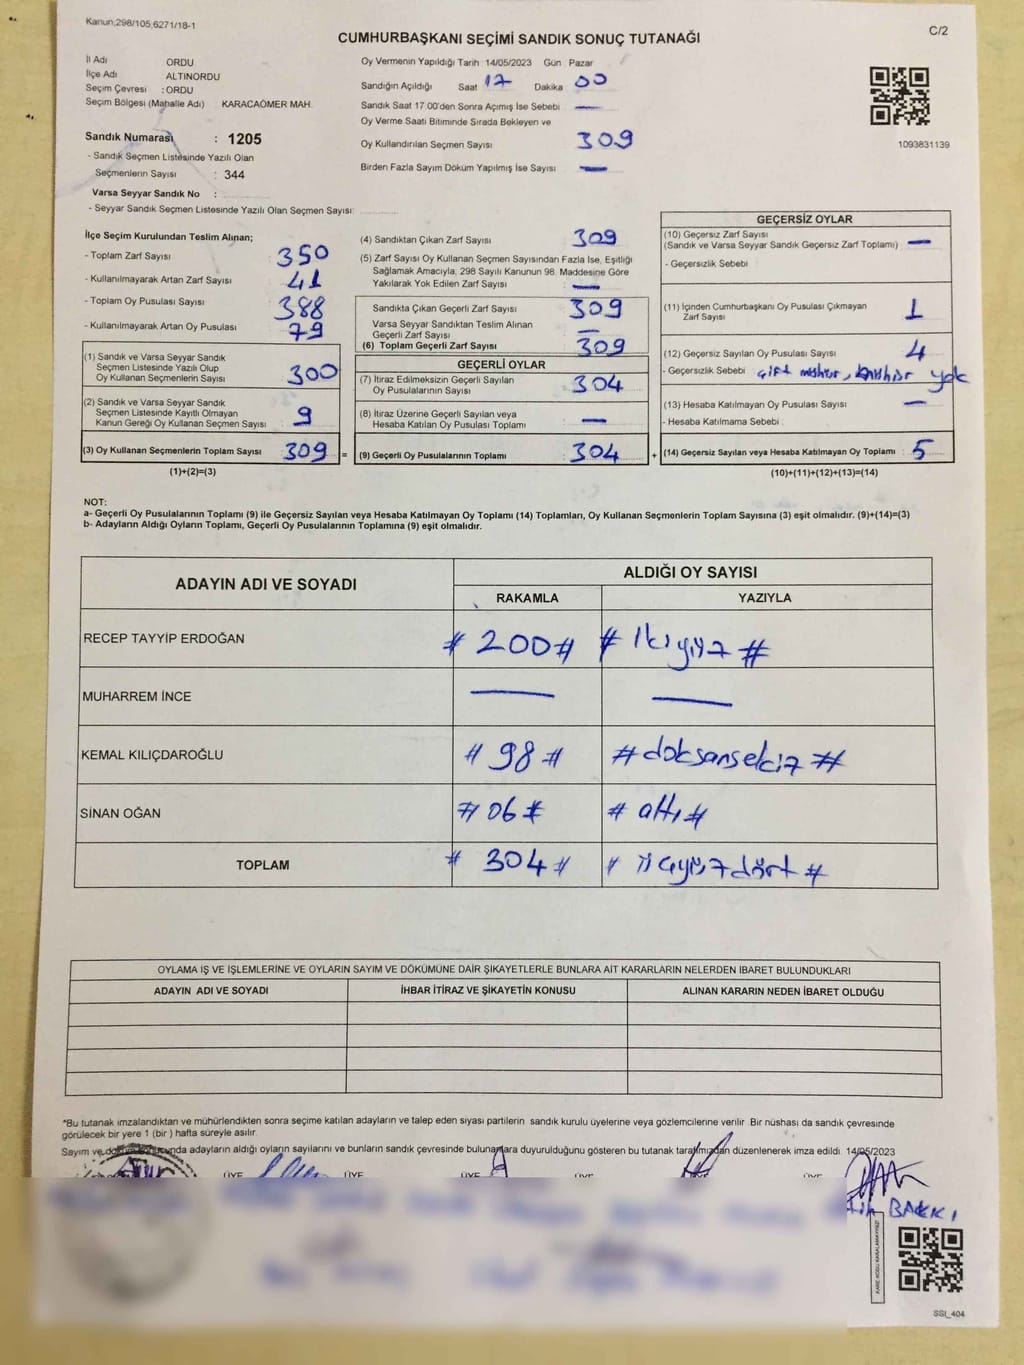 Kanun,298/105,6271/18-1
C/2
CUMHURBAŞKANI SEÇİMİ SANDIK SONUÇ TUTANAĞI
İl Adı ORDU
İlçe Adı ALTINORDU
Seçim Çevresi : ORDU
Seçim Bölgesi (Mahalle Adı) KARACAÖMER MAH.
Sandık Numarası : 1205
- Sandık Seçmen Listesinde Yazılı Olan
Seçmenlerin Sayısı : 344
Varsa Seyyar Sandık No :
- Seyyar Sandık Seçmen Listesinde Yazılı Olan Seçmen Sayısı:
Oy Vermenin Yapıldığı Tarih 14/05/2023 Gün Pazar
Sandığın Açıldığı Saat 17 Dakika 00
Sandık Saat 17.00'den Sonra Açımış İse Sebebi —
Oy Verme Saati Bitiminde Sırada Bekleyen ve
Oy Kullandırılan Seçmen Sayısı 309
Birden Fazla Sayım Döküm Yapılmış İse Sayısı —
1093831139
İlçe Seçim Kurulundan Teslim Alınan;
- Toplam Zarf Sayısı 350
- Kullanılmayarak Artan Zarf Sayısı 41
- Toplam Oy Pusulası Sayısı 388
- Kullanılmayarak Artan Oy Pusulası 79
(1) Sandık ve Varsa Seyyar Sandık
Seçmen Listesinde Yazılı Olup
Oy Kullanan Seçmenlerin Sayısı 300
(2) Sandık ve Varsa Seyyar Sandık
Seçmen Listesinde Kayıtlı Olmayan
Kanun Gereği Oy Kullanan Seçmen Sayısı 9
(3) Oy Kullanan Seçmenlerin Toplam Sayısı 309 =
(1)+(2)=(3)
(4) Sandıktan Çıkan Zarf Sayısı 309
(5) Zarf Sayısı Oy Kullanan Seçmen Sayısından Fazla İse, Eşitliği
Sağlamak Amacıyla, 298 Sayılı Kanunun 98. Maddesine Göre
Yakılarak Yok Edilen Zarf Sayısı —
Sandıkta Çıkan Geçerli Zarf Sayısı 309
Varsa Seyyar Sandıktan Teslim Alınan
Geçerli Zarf Sayısı —
(6) Toplam Geçerli Zarf Sayısı 309
GEÇERLİ OYLAR
(7) İtiraz Edilmeksizin Geçerli Sayılan
Oy Pusulasının Sayısı 304
(8) İtiraz Üzerine Geçerli Sayılan veya
Hesaba Katılan Oy Pusulası Toplamı —
(9) Geçerli Oy Pusulalarının Toplamı 304 +
GEÇERSİZ OYLAR
(10) Geçersiz Zarf Sayısı
(Sandık ve Varsa Seyyar Sandık Geçersiz Zarf Toplamı) —
- Geçersizlik Sebebi
(11) İçinden Cumhurbaşkanı Oy Pusulası Çıkmayan
Zarf Sayısı 1
(12) Geçersiz Sayılan Oy Pusulası Sayısı 4
- Geçersizlik Sebebi çift mühür, mühür yok
(13) Hesaba Katılmayan Oy Pusulası Sayısı —
- Hesaba Katılmama Sebebi :
(14) Geçersiz Sayılan veya Hesaba Katılmayan Oy Toplamı : 5
(10)+(11)+(12)+(13)=(14)
NOT:
a- Geçerli Oy Pusulalarının Toplamı (9) ile Geçersiz Sayılan veya Hesaba Katılmayan Oy Toplamı (14) Toplamları, Oy Kullanan Seçmenlerin Toplam Sayısına (3) eşit olmalıdır. (9)+(14)=(3)
b- Adayların Aldığı Oyların Toplamı, Geçerli Oy Pusulalarının Toplamına (9) eşit olmalıdır.
ADAYIN ADI VE SOYADI
ALDIĞI OY SAYISI
RAKAMLA YAZIYLA
RECEP TAYYİP ERDOĞAN # 200 # # ikiyüz #
MUHARREM İNCE — —
KEMAL KILIÇDAROĞLU # 98 # # doksansekiz #
SİNAN OĞAN # 06 # # altı #
TOPLAM # 304 # # üçyüzdört #
OYLAMA İŞ VE İŞLEMLERİNE VE OYLARIN SAYIM VE DÖKÜMÜNE DAİR ŞİKAYETLERLE BUNLARA AİT KARARLARIN NELERDEN İBARET BULUNDUKLARI
ADAYIN ADI VE SOYADI İHBAR İTİRAZ VE ŞİKAYETİN KONUSU ALINAN KARARIN NEDEN İBARET OLDUĞU
*Bu tutanak imzalandıktan ve mühürlendikten sonra seçime katılan adayların ve talep eden siyasi partilerin sandık kurulu üyelerine veya gözlemcilerine verilir. Bir nüshası da sandık çevresinde
görülecek bir yere 1 (bir ) hafta süreyle asılır.
adayların aldığı oyların sayılarını ve bunların sandık çevresinde bulunanlara duyurulduğunu gösteren bu tutanak tarafımızdan düzenlenerek imza edildi. 14/05/2023
ÜYE ÜYE ÜYE ÜYE
SSI_404